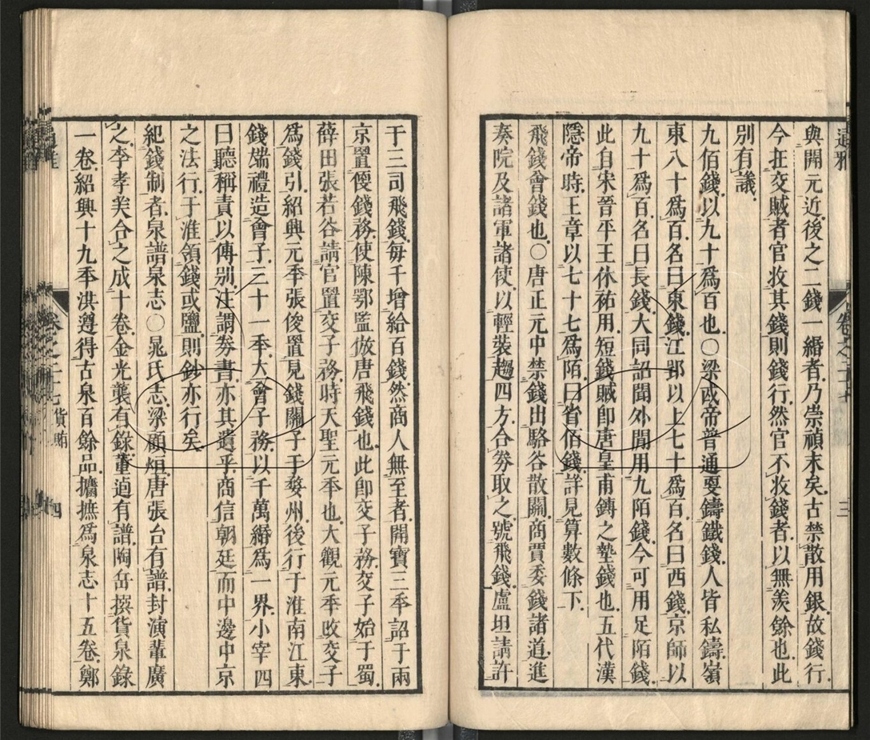 通雅
卷之二十七
三
與開元近後之二錢一緡者乃崇禎末矣古禁散用銀故錢行
今在交賊者官收其錢則錢行然官不收錢者以無羨餘也此
別有議
九佰錢以九十爲百也○梁武帝普通更鑄鐵錢人皆私鑄嶺
東八十爲百名曰東錢江郢以上七十爲百名曰西錢京師以
九十爲百名曰長錢大同詔聞外閒用九陌錢今可用足陌錢
此自宋晉平王休祐用短錢賦卽唐皇甫鎛之墊錢也五代漢
隱帝時王章以七十七爲陌曰省佰錢詳見算數條下
飛錢會錢也○唐正元中禁錢出駱谷散關商賈委錢諸道進
奏院及諸軍諸使以輕裝趨四方合券取之號飛錢盧坦請許
于三司飛錢每千增給百錢然商人無至者開寶三年詔于兩
京置便錢務使陳鄂監倣唐飛錢也此卽交子務交子始于蜀
薛田張若谷請官置交子務時天聖元年也大觀元年改交子
爲錢引紹興元年張俊置見錢關子于婺州後行于淮南江東
錢端禮造會子三十一年大會子務以千萬緡爲一界小宰四
曰聽稱責以傅別注謂券書亦其遺乎商信朝廷而中邊中京
之法行于淮領錢或鹽則鈔亦行矣
紀錢制者泉譜泉志○晁氏志梁顧烜唐張台有譜封演輩廣
之李孝美合之成十卷金光襲有錄董逌有譜陶岳撰貨泉錄
一卷紹興十九年洪遵得古泉百餘品攟摭爲泉志十五卷鄭
卷之二十七 貨賄
四